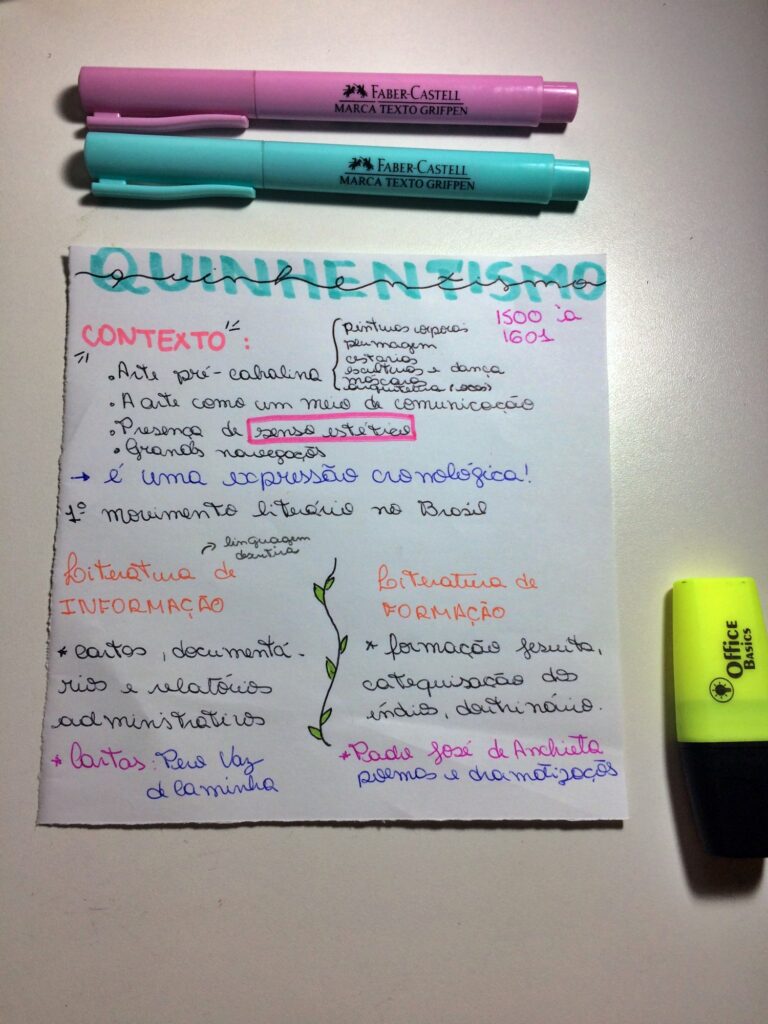 FABER-CASTELL
MARCA TEXTO GRIFPEN
FABER-CASTELL
MARCA TEXTO GRIFPEN
QUINHENTISMO
quinhentismo
1500 à
1601
CONTEXTO:
• Arte pré-cabralina
pinturas corporais
plumagem
cestarias
esculturas e dança
máscara
arquitetura (ocas)
• A arte como um meio de comunicação
• Presença de senso estético
• Grands navegaçõs
→ é uma expressão cronológica!
1º movimento literário no Brasil
linguagem
descritiva
Literatura de
INFORMAÇÃO
* cartas, documentá-
rios e relatórios
administrativos
* Cartas: Pero Vaz
de Caminha
Literatura de
FORMAÇÃO
* formação jesuita,
catequisação dos
índios, doutrinário.
* Padre José de Anchieta
poemas e dramatizaçõs
Office
BASICS